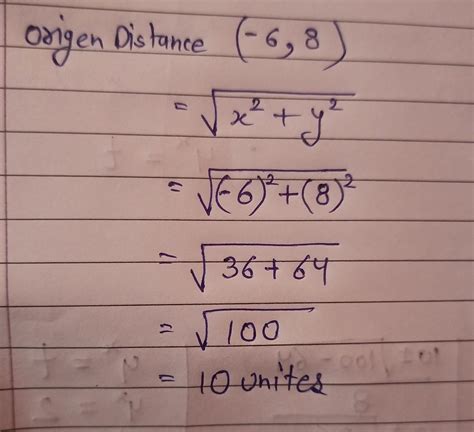 Origen Distance (-6, 8)
= √x² + y²
= √(-6)² + (8)²
= √36 + 64
= √100
= 10 unites